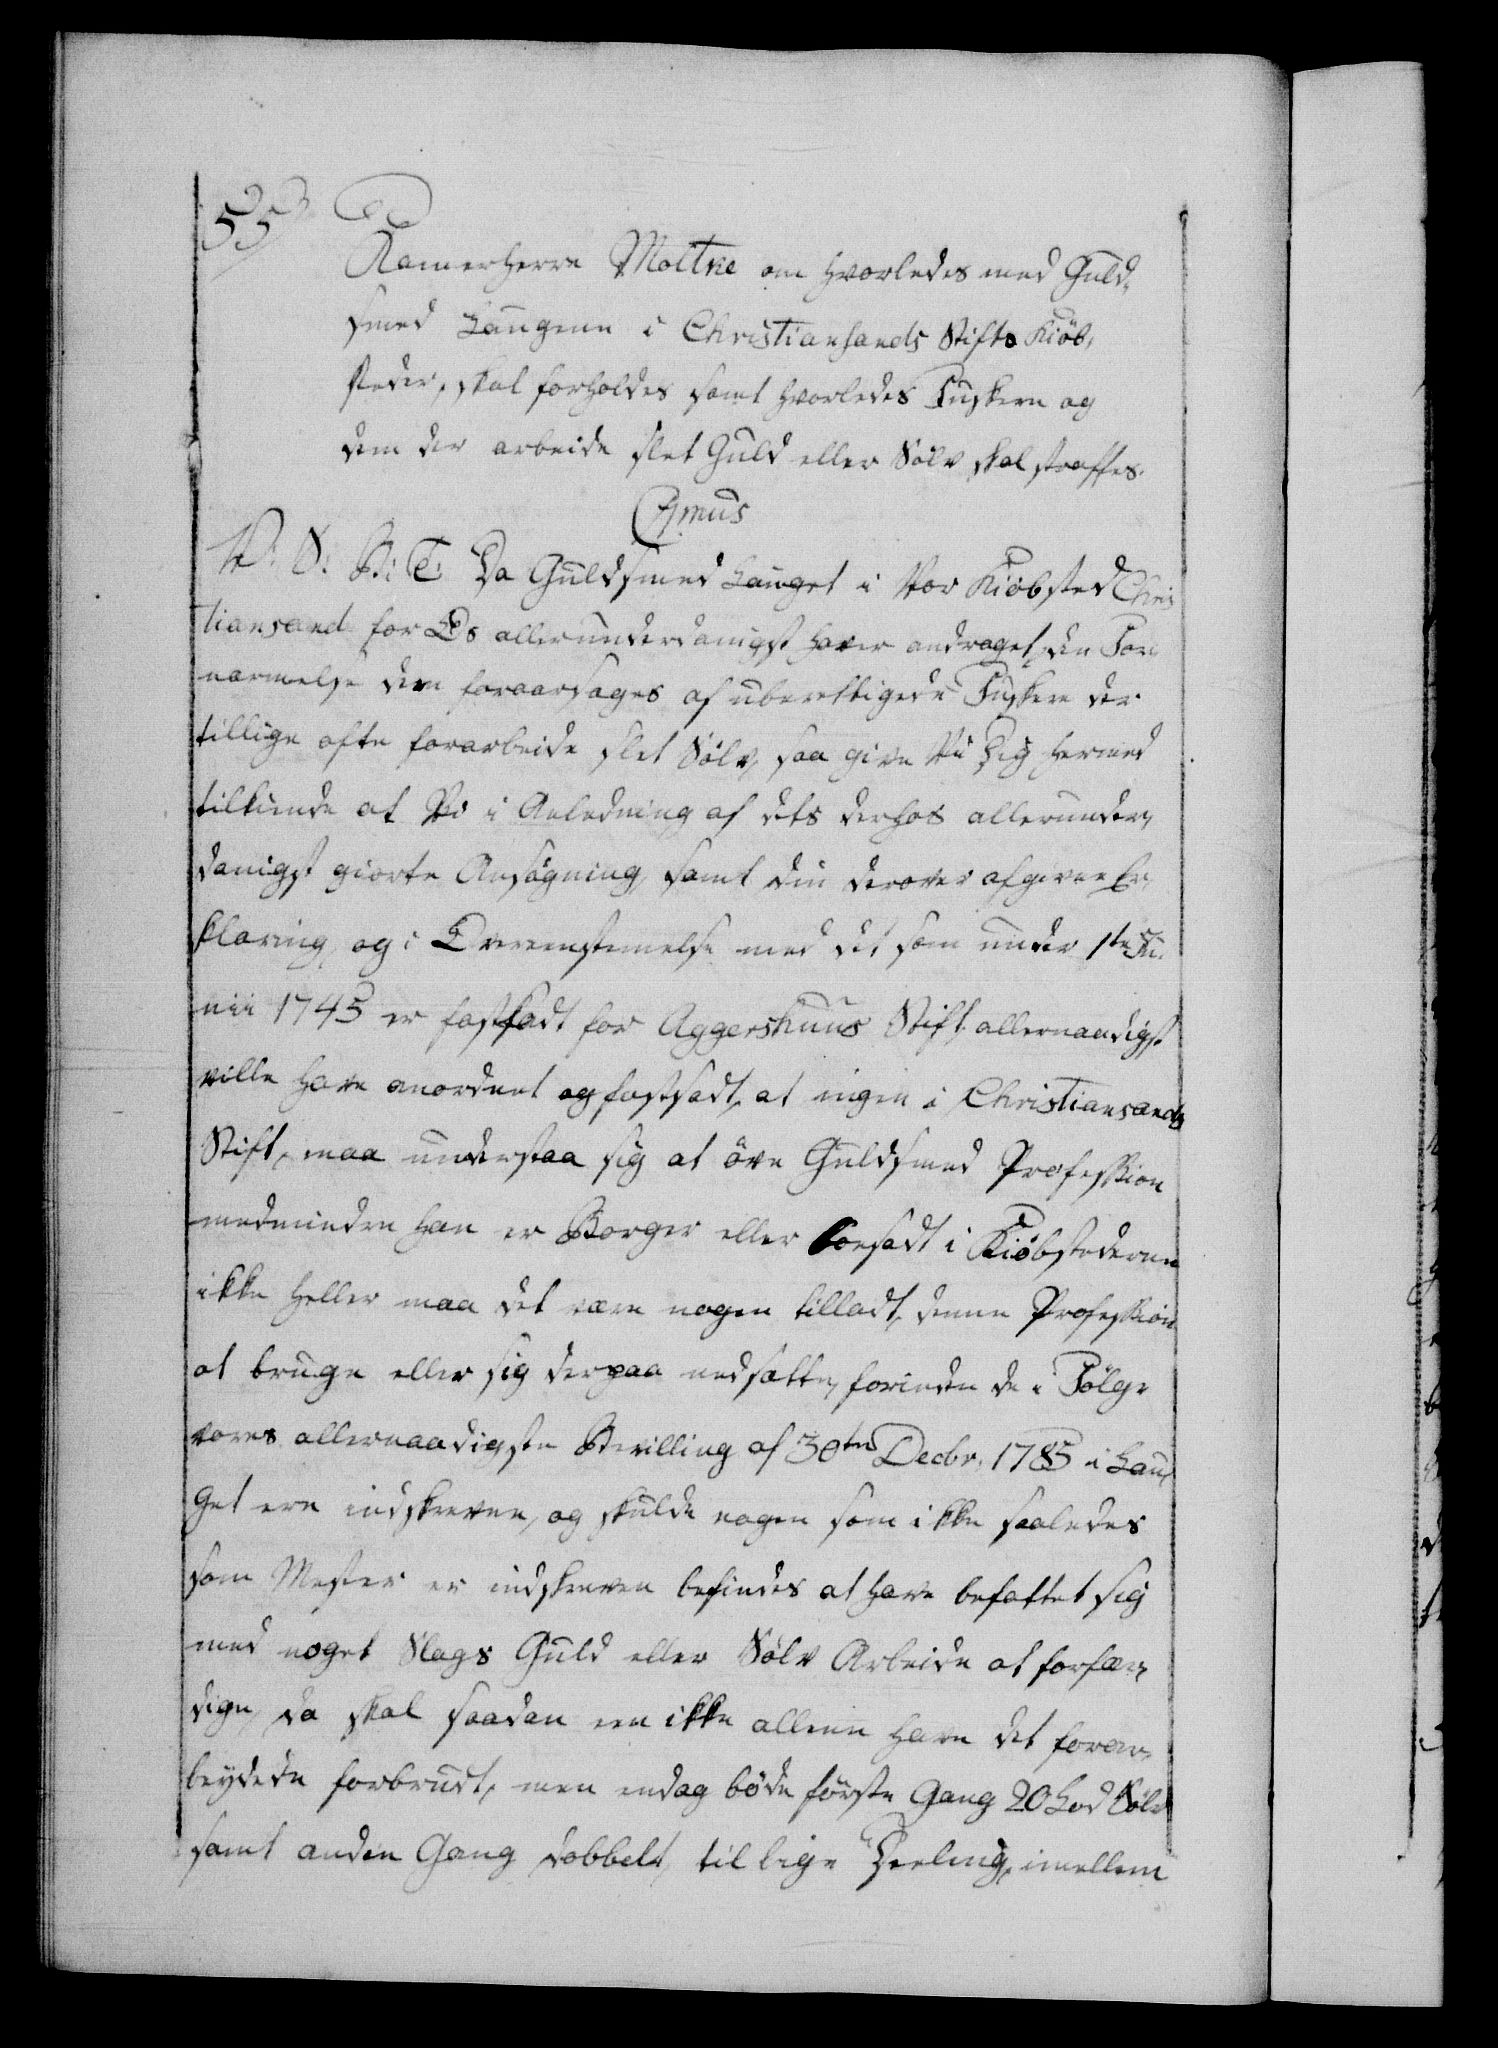 55
Kamerherre Moltke om hvorledes med Guld,
smed Laugene i Christiansands Stifts Kiöb,
steder, skal forholdes samt hvorledes Fuskere og
dem der arbeide slet Guld eller Sölv skal straffes.
C7mus
V: S: G: T: Da Guldsmed Lauget i Vor Kiöbsted Chris
tiansand for Os allerunderdanigst haver andraget, den For
nærmelse dem foraarsages af uberettigede Fuskere der
tillige ofte forarbeide slet Sölv, saa give Vi Dig hermed
tilkiende at Vi i Anledning af dets derhos allerunder,
danigst giorte Ansögning, samt din derover afgivne Er,
klæring, og i Overeensstemelse med det som under 1te Ju,
nii 1745 er fastsadt for Aggershuus Stift allernaadigst
ville have anordnet og fastsadt, at ingen i Christiansands
Stift, maa understaa sig at öve Guldsmed Profession
medminden han er Borger eller boesadt i Kiöbstederne
ikke heller maa det være nogen tilladt, denne Profession
at bruge eller sig derpaa nedsætte, forinden de i Fölge
vores allernaadigste Bevilling af 30te Decbr. 1785 i Lau,
get ere indskrevne, og skulde nogen som ikke saaledes
som Mester er indskreven befindes at have befattet sig
med noget Slags Guld eller Sölv Arbeide at forfær,
dige, da skal saadan een ikke alleene have det forar,
beydede forbrudt, men endog böde förste Gang 20 Lod Sölv
samt anden Gang dobbelt, til lige Deeling, imellem